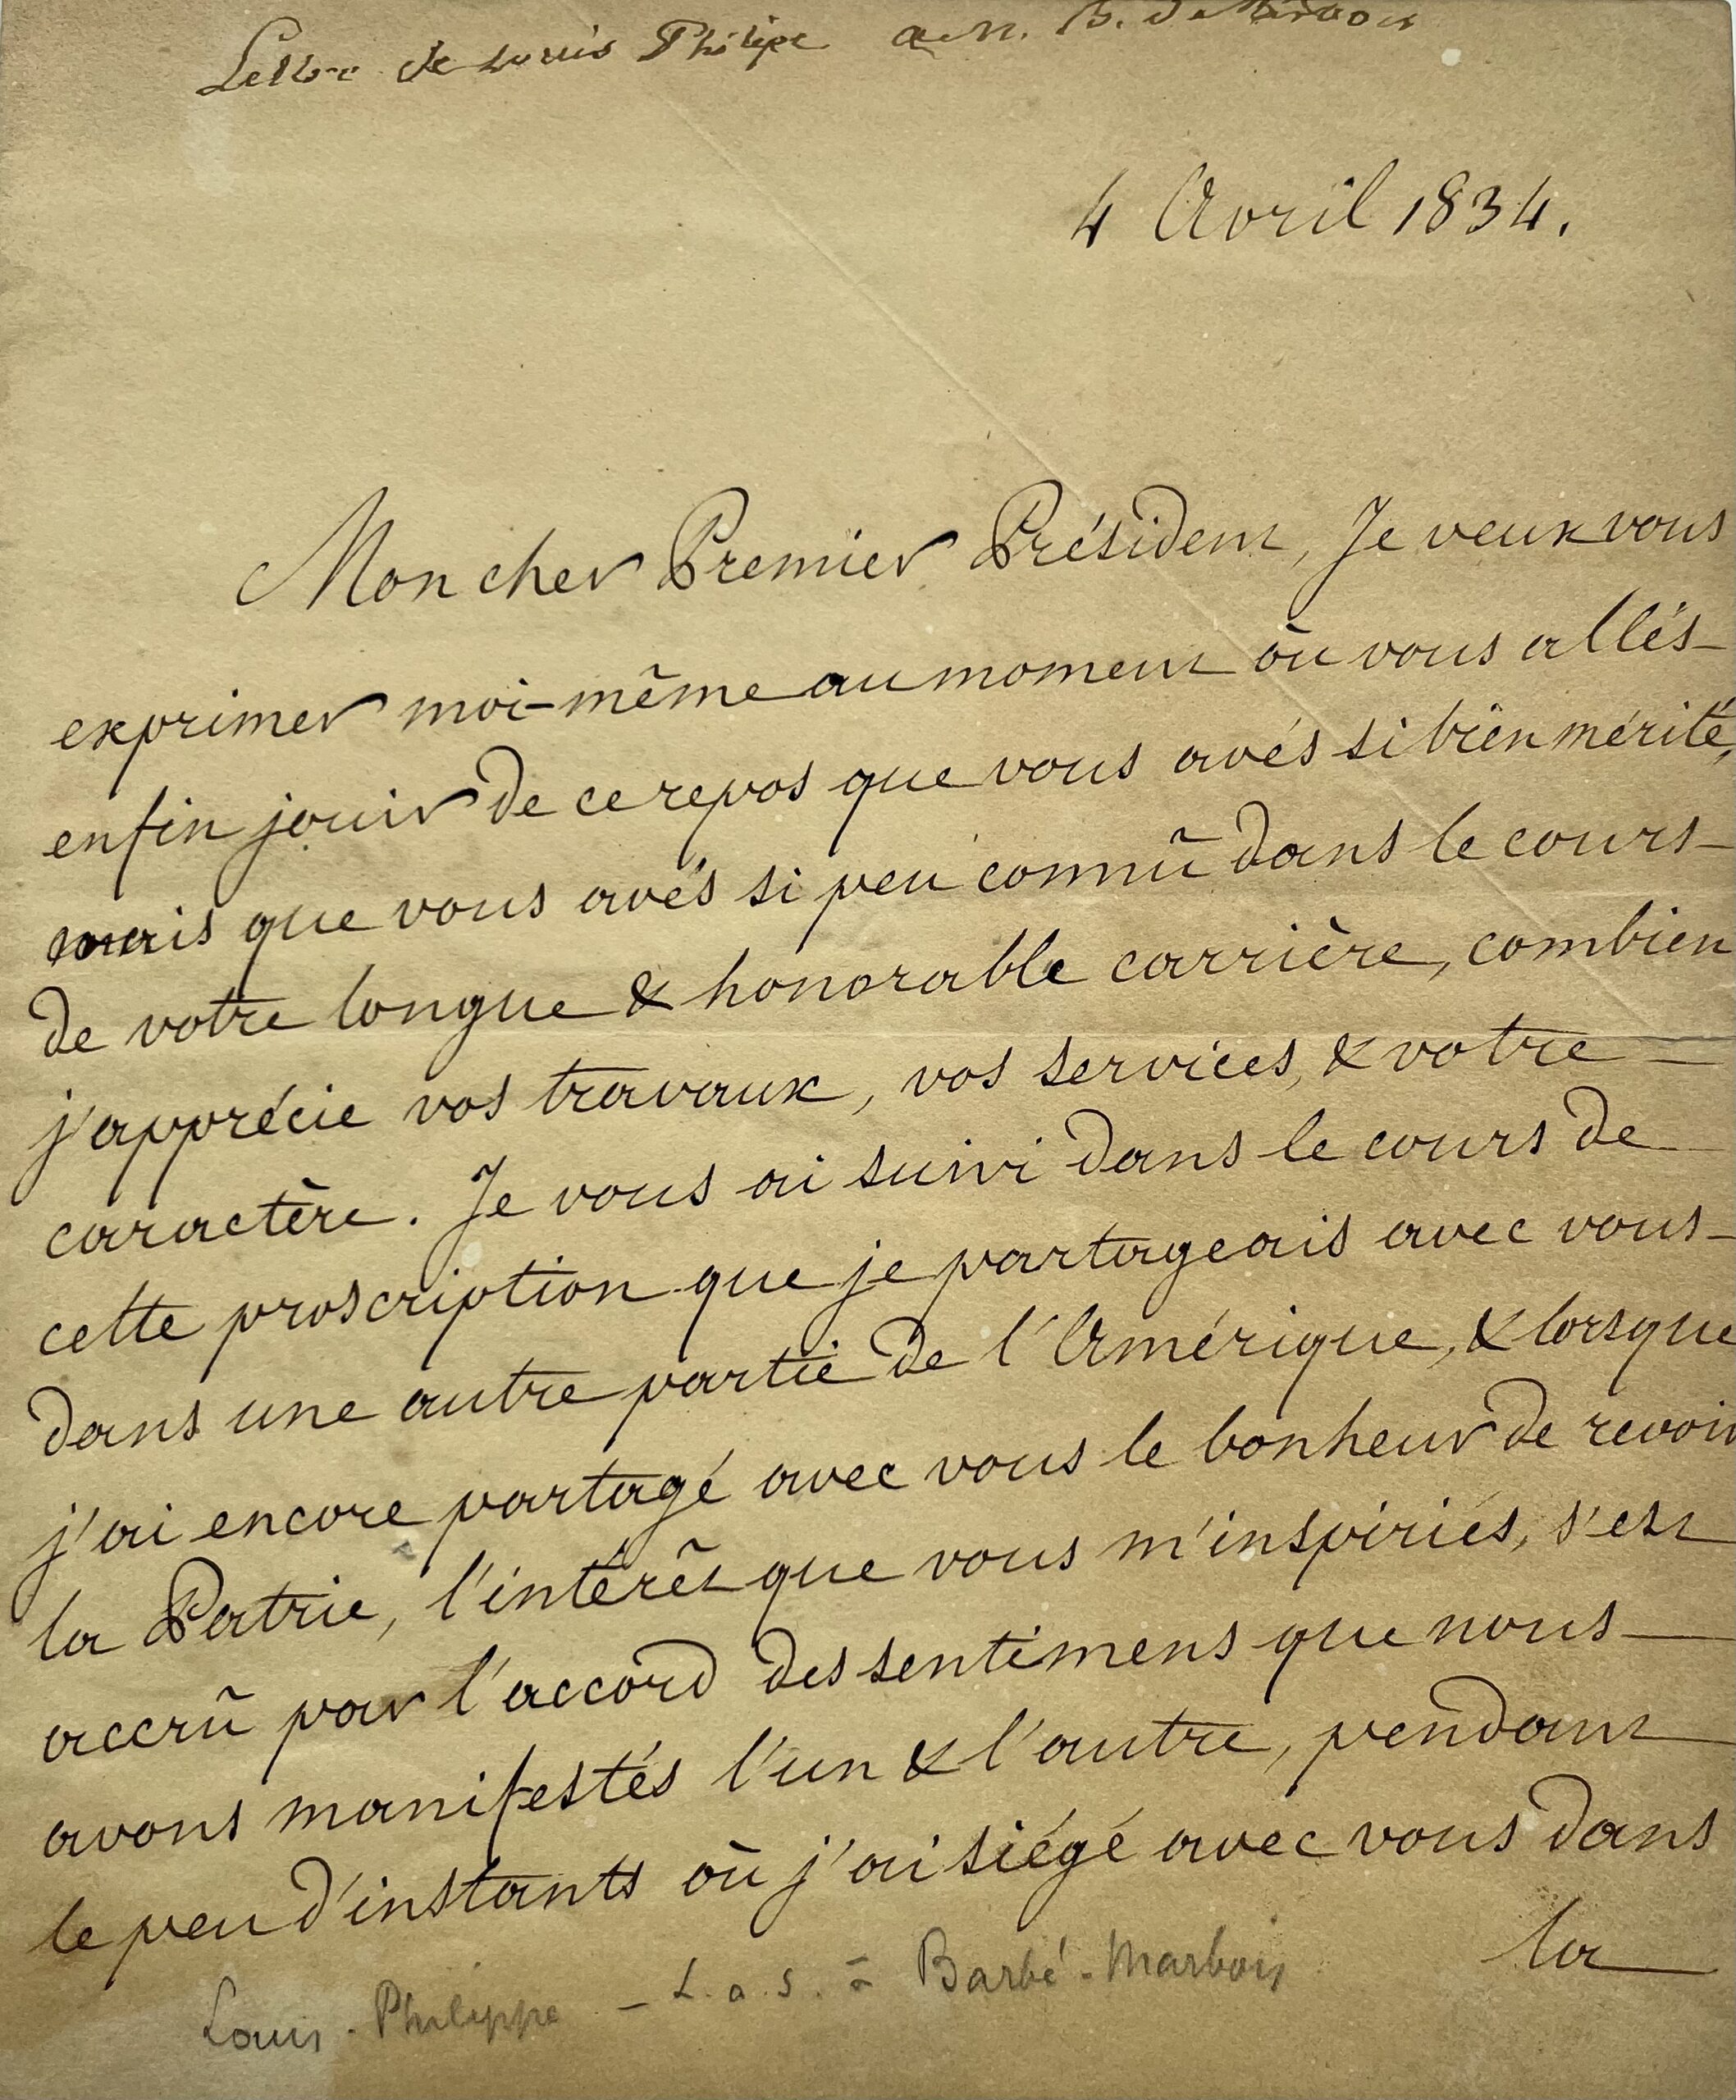 Lettre de Louis Philipe a M. B. de Marbois
4 Avril 1834.
Mon cher Premier Président, Je veux vous
exprimer moi-même au moment où vous allés
enfin jouir de ce repos que vous avés si bien mérité,
mais que vous avés si peu connû dans le cours
de votre longue & honorable carrière, combien
j'apprécie vos travaux, vos services, & votre
caractère. Je vous ai suivi dans le cours de
cette proscription que je partageais avec vous
dans une autre partie de l'Amérique, & lorsque
j'ai encore partagé avec vous le bonheur de revoir
la Patrie, l'intérêt que vous m'inspiriés, s'est
accrû par l'accord des sentimens que nous
avons manifestés l'un & l'autre, pendant
le peu d'instants où j'ai siégé avec vous dans
la
Louis-Philippe - L. a. S. à Barbé-Marbois